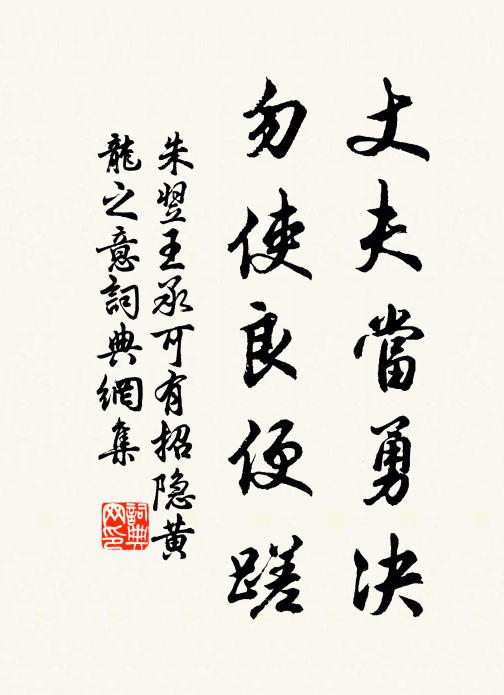 丈夫當勇決
勿使良便蹉
朱翌王承可有招隐黄
龍之意詞典網集
詞典
网印